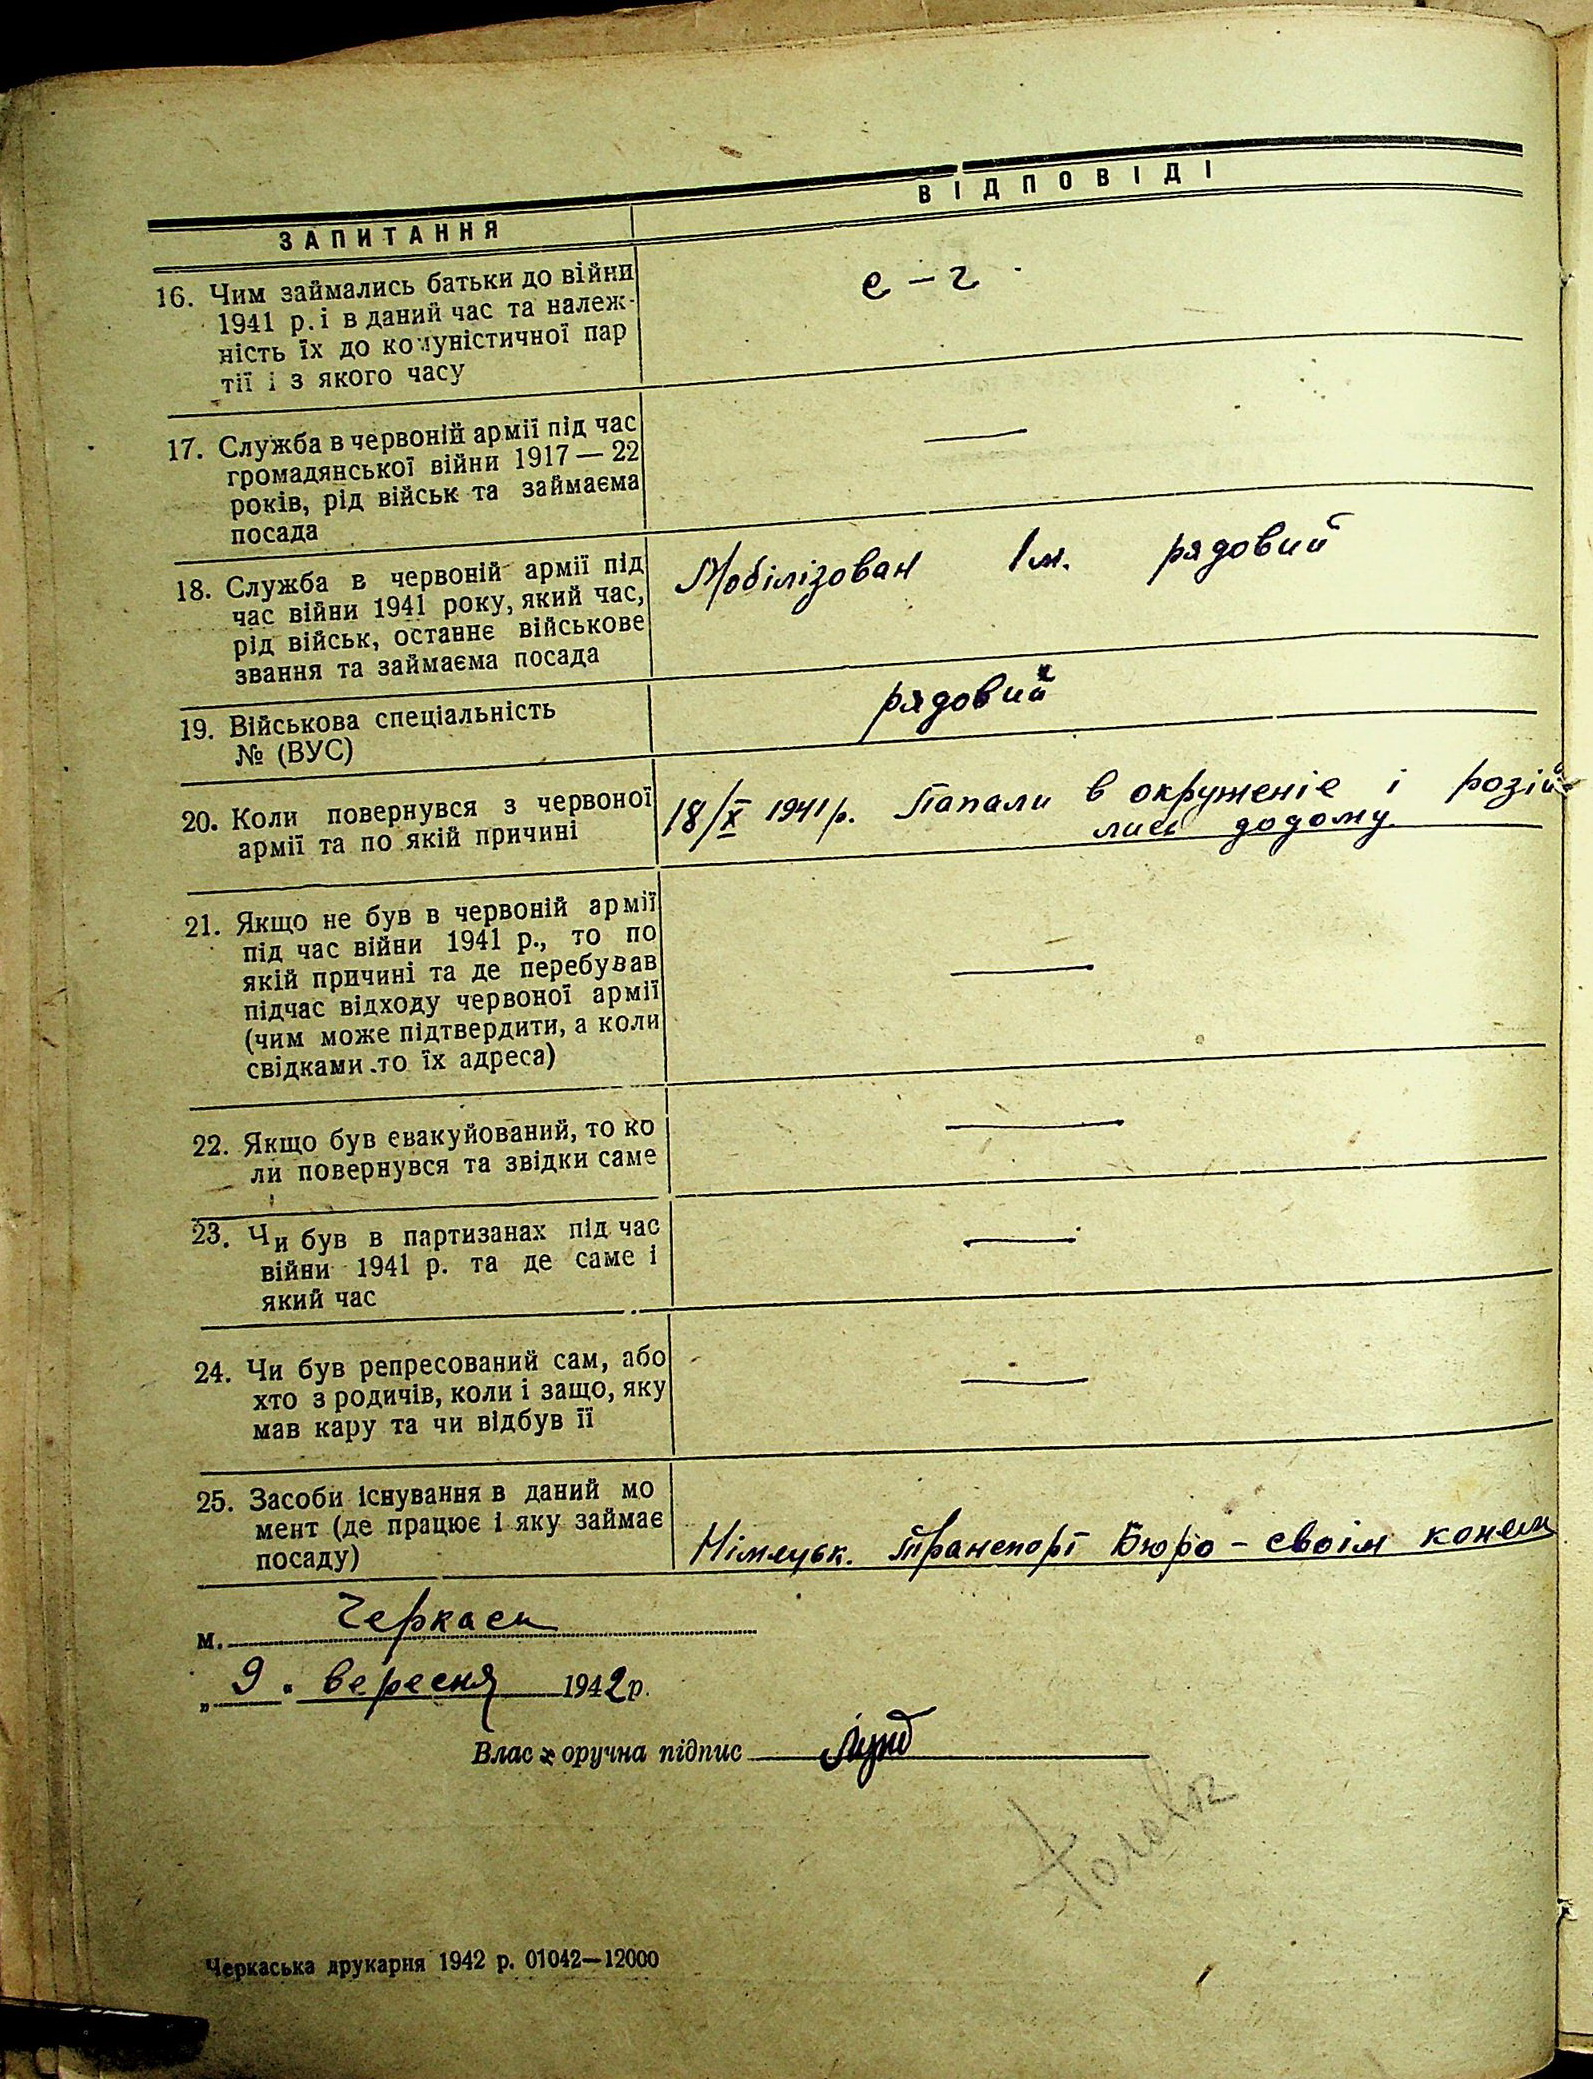 ЗАПИТАННЯ ВІДПОВІДІ
16. Чим займались батьки до війни
1941 р. і в даний час та належ-
ність їх до комуністичної пар
тії і з якого часу
с – г
17. Служба в червоній армії під час
громадянської війни 1917 — 22
років, рід військ та займаєма
посада
—
18. Служба в червоній армії під
час війни 1941 року, який час,
рід військ, останнє військове
звання та займаєма посада
Мобілізован 1 м. рядовий
19. Військова спеціальність
№ (ВУС)
рядовий
20. Коли повернувся з червоної
армії та по якій причині
18/X 1941 р. Папали в окруженіе і розій-
лись додому
21. Якщо не був в червоній армії
під час війни 1941 р., то по
якій причині та де перебував
підчас відходу червоної армії
(чим може підтвердити, а коли
свідками .то їх адреса)
—
22. Якщо був евакуйований, то ко
ли повернувся та звідки саме
—
23. Чи був в партизанах під час
війни 1941 р. та де саме і
який час
—
24. Чи був репресований сам, або
хто з родичів, коли і защо, яку
мав кару та чи відбув її
—
25. Засоби існування в даний мо
мент (де працює і яку займає
посаду)
Німецьк. Транспорт Бюро – своім конем
м. Черкаси
„ 9 " вересня 1942 р.
Власноручна підпис
Черкаська друкарня 1942 р. 01042—12000